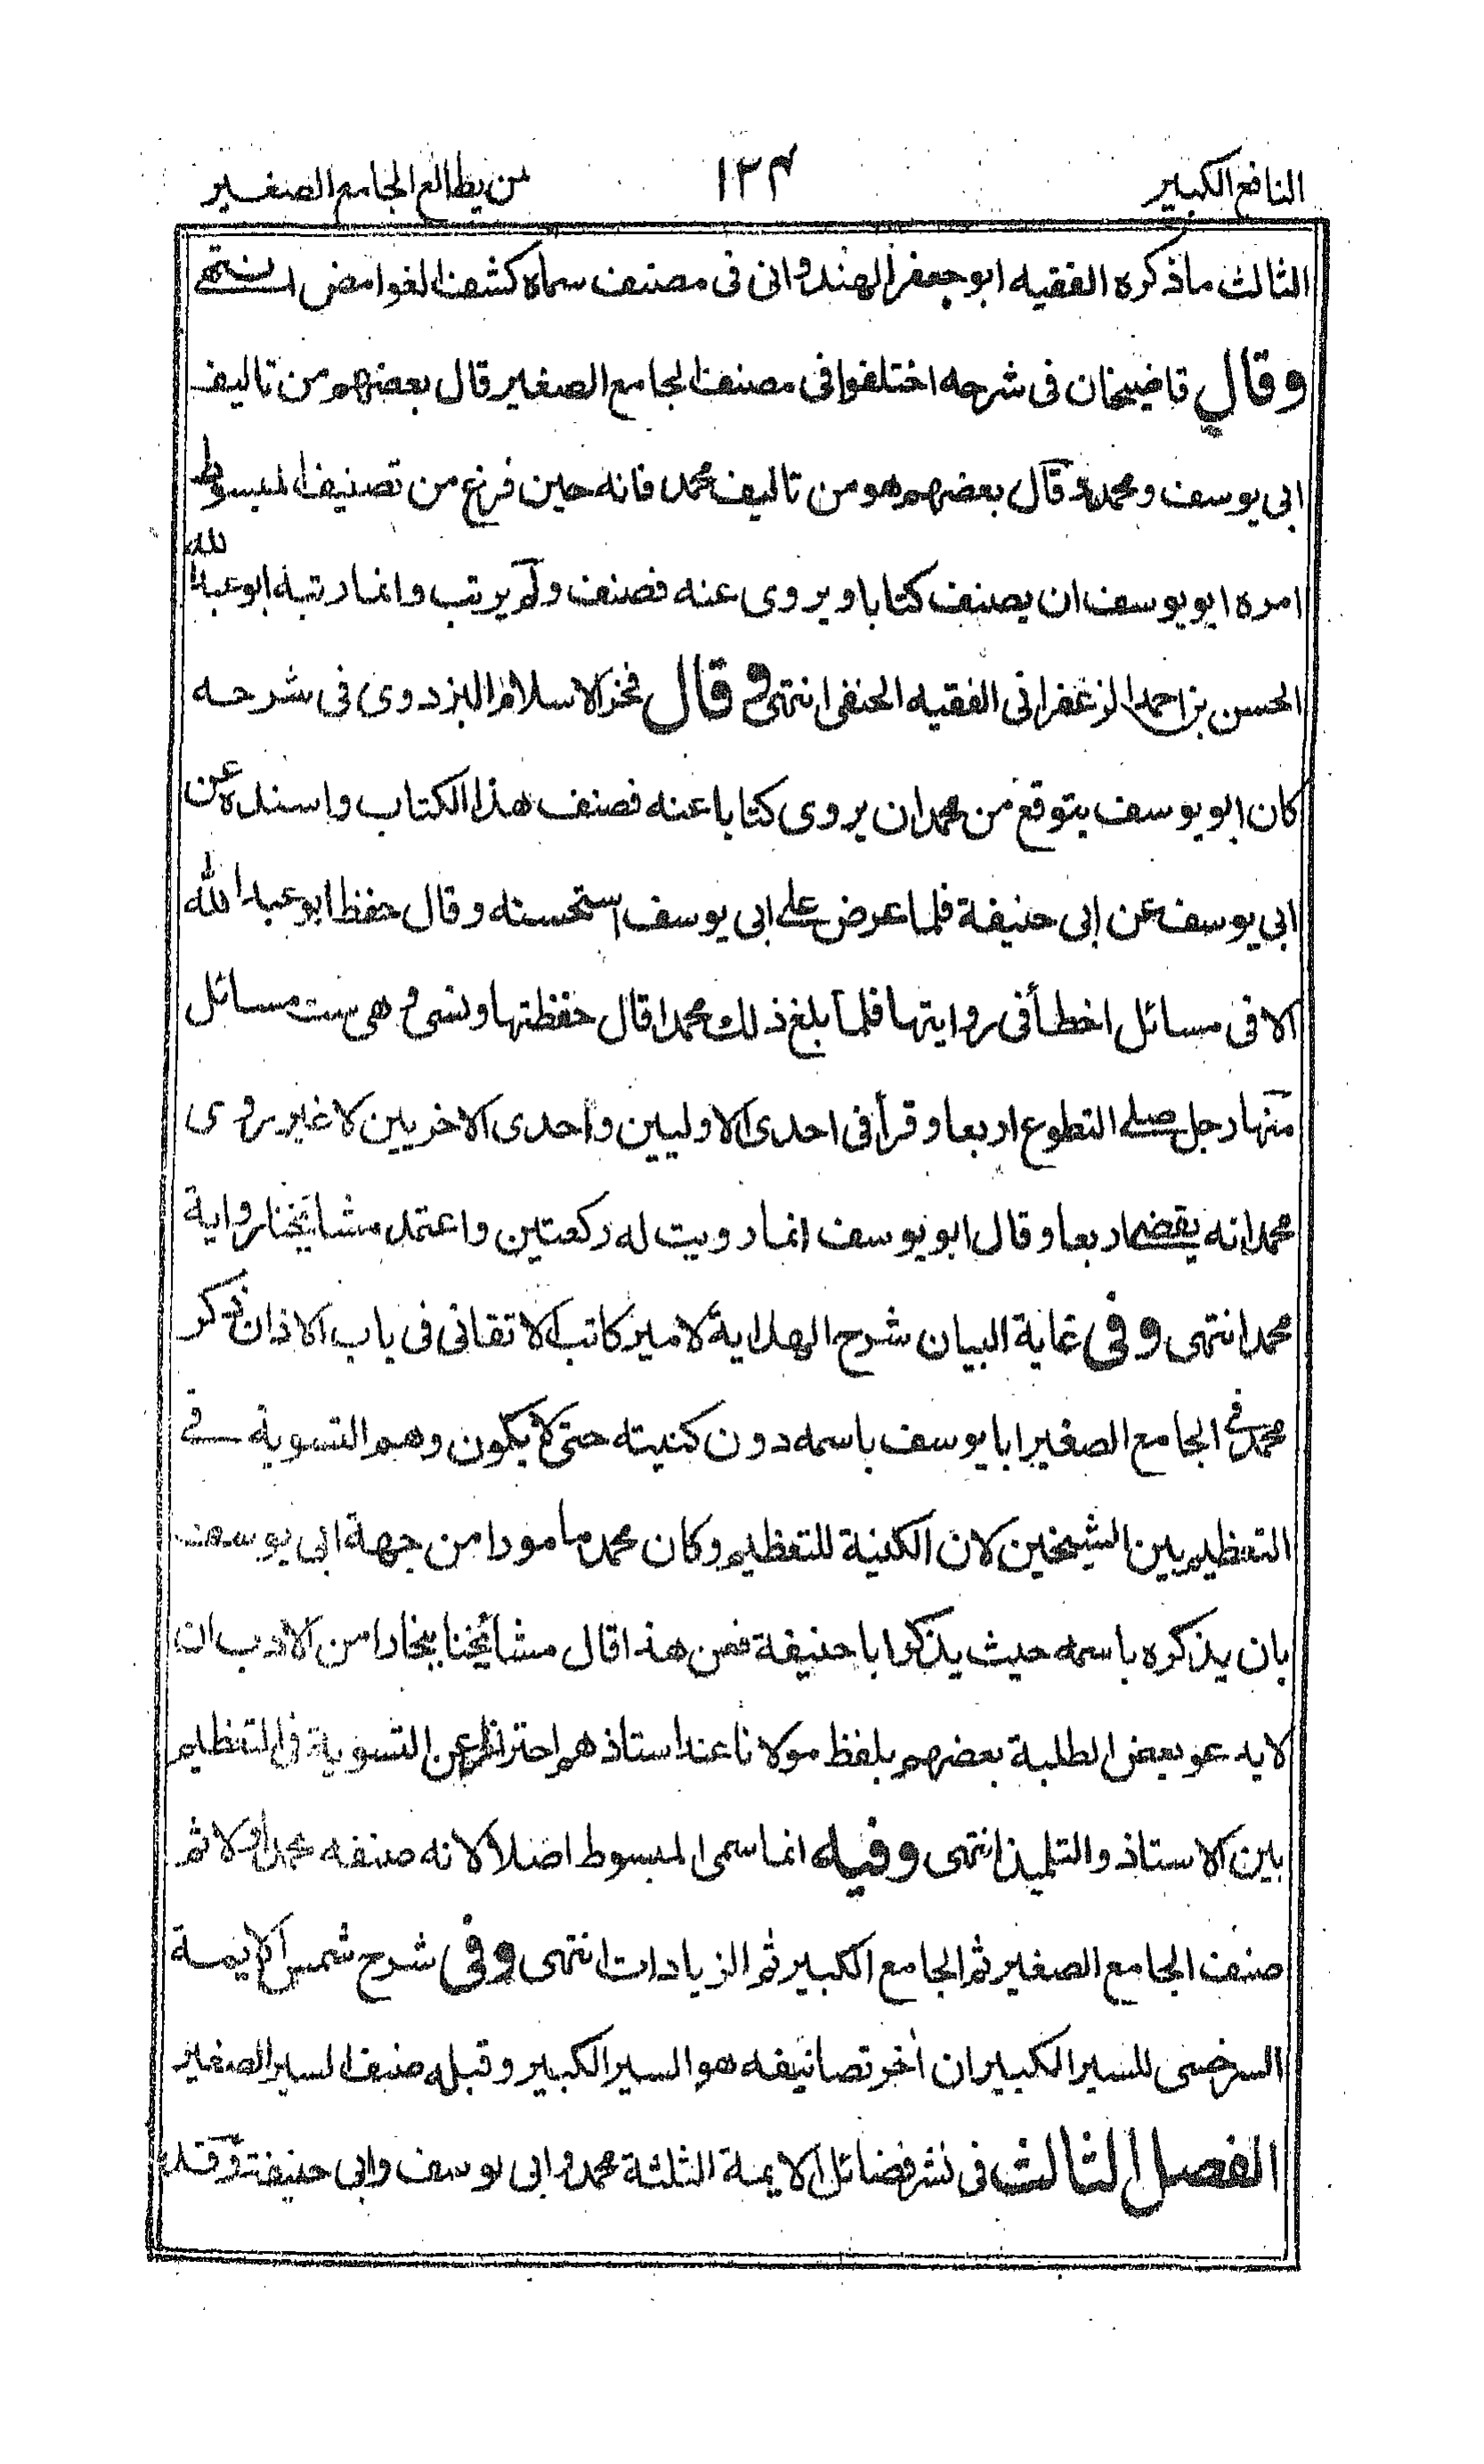 النافع الكبير ١٢٤ لمن يطالع الجامع الصغير
الثالث ما ذكره الفقيه ابو جعفر الهندوانى فى مصنف سماه كشف الغوامض انتهى
وقال قاضيخان فى شرحه اختلفوا فى مصنف الجامع الصغير قال بعضهم من تاليف
ابى يوسف ومحمد وقال بعضهم هو من تاليف محمد فانه حين فرغ من تصنيف المبسوط
امره ابو يوسف ان يصنف كتابا ويروى عنه فصنف ولم يرتب وانما رتبه ابو عبد الله
الحسن بن احمد الزعفرانى الفقيه الحنفى انتهى وقال فخر الاسلام البزدوى فى شرحه
كان ابو يوسف يتوقع من محمد ان يروى كتابا عنه فصنف هذا الكتاب واسنده عن
ابى يوسف عن ابى حنيفة فلما عرض على ابى يوسف استحسنه وقال حفظ ابو عبد الله
الا فى مسائل اخطأ فى روايتها فلما بلغ ذلك محمدا قال حفظتها ونسى وهى ست مسائل
منها رجل صلى التطوع اربعا وقرأ فى احدى الاوليين واحدى الاخريين لا غير روى
محمد انه يقضى اربعا وقال ابو يوسف انما رويت له ركعتين واعتمد مشايخنا رواية
محمد انتهى وفى غاية البيان شرح الهداية لامير كاتب الاتقانى فى باب الاذان ذكر
محمد فى الجامع الصغير ابا يوسف باسمه دون كنيته حتى لا يكون وهم التسوية فى
التعظيم بين الشيخين لان الكنية للتعظيم وكان محمد مامورا من جهة ابى يوسف
بان يذكره باسمه حيث يذكر ابا حنيفة فمن هذا قال مشائخنا ببخارا من الادب ان
لا يدعو بعض الطلبة بعضهم بلفظ مولانا عند استاذهم احترازا عن التسوية فى التعظيم
بين الاستاذ والتلميذ انتهى وفيه انما سمى المبسوط اصلا لانه صنفه محمد اولا ثم
صنف الجامع الصغير ثم الجامع الكبير ثم الزيادات انتهى وفى شرح شمس الايمة
السرخسى للسير الكبير ان اخر تصانيفه هو السير الكبير وقبله صنف السير الصغير
الفصل الثالث فى نشر فضائل الايمة الثلثة محمد وابى يوسف وابى حنيفة وقد